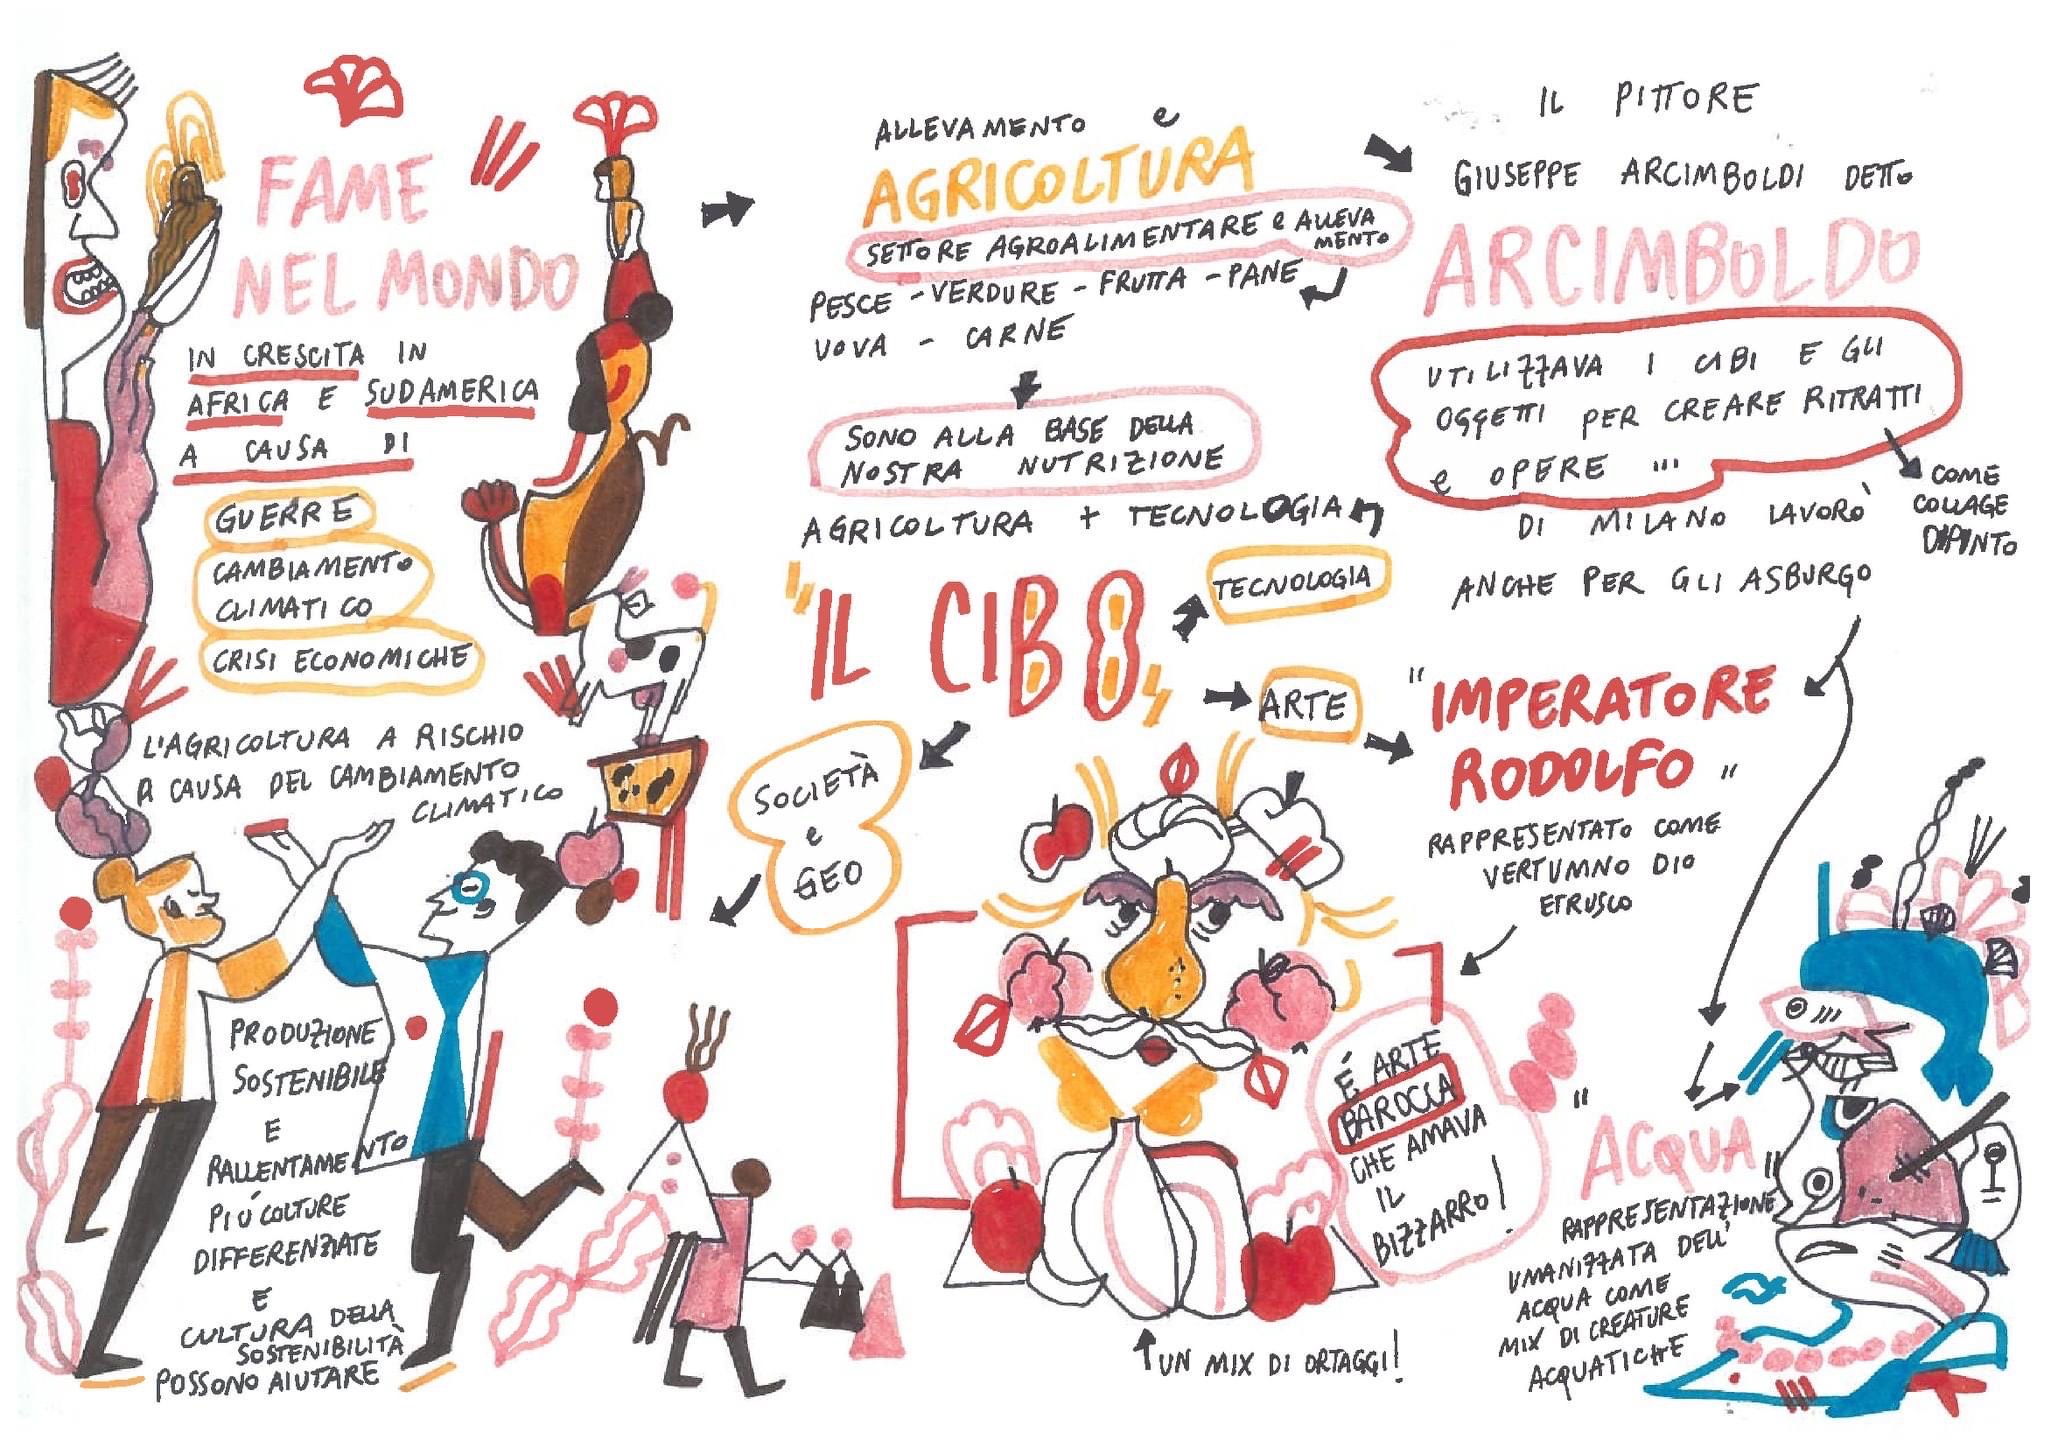 FAME
NEL MONDO
IN CRESCITA IN
AFRICA E SUDAMERICA
A CAUSA DI
GUERRE
CAMBIAMENTO
CLIMATICO
CRISI ECONOMICHE
L'AGRICOLTURA A RISCHIO
A CAUSA DEL CAMBIAMENTO
CLIMATICO
PRODUZIONE
SOSTENIBILE
E
RALLENTAMENTO
PIÚ COLTURE
DIFFERENZIATE
E
CULTURA DELLA
SOSTENIBILITÀ
POSSONO AIUTARE
ALLEVAMENTO e
AGRICOLTURA
SETTORE AGROALIMENTARE e ALLEVA
MENTO
PESCE - VERDURE - FRUTTA - PANE
UOVA - CARNE
SONO ALLA BASE DELLA
NOSTRA NUTRIZIONE
AGRICOLTURA + TECNOLOGIA
"IL CIBO"
TECNOLOGIA
ARTE
SOCIETÀ
e
GEO
IL PITTORE
GIUSEPPE ARCIMBOLDI DETTO
ARCIMBOLDO
UTILIZZAVA I CIBI E GLI
OGGETTI PER CREARE RITRATTI
e OPERE ...
COME
COLLAGE
DIPINTO
DI MILANO LAVORÒ
ANCHE PER GLI ASBURGO
"IMPERATORE
RODOLFO"
RAPPRESENTATO COME
VERTUMNO DIO
ETRUSCO
É ARTE
BAROCCA
CHE AMAVA
IL
BIZZARRO!
UN MIX DI ORTAGGI!
"ACQUA"
RAPPRESENTAZIONE
UMANIZZATA DELL'
ACQUA COME
MIX DI CREATURE
ACQUATICHE